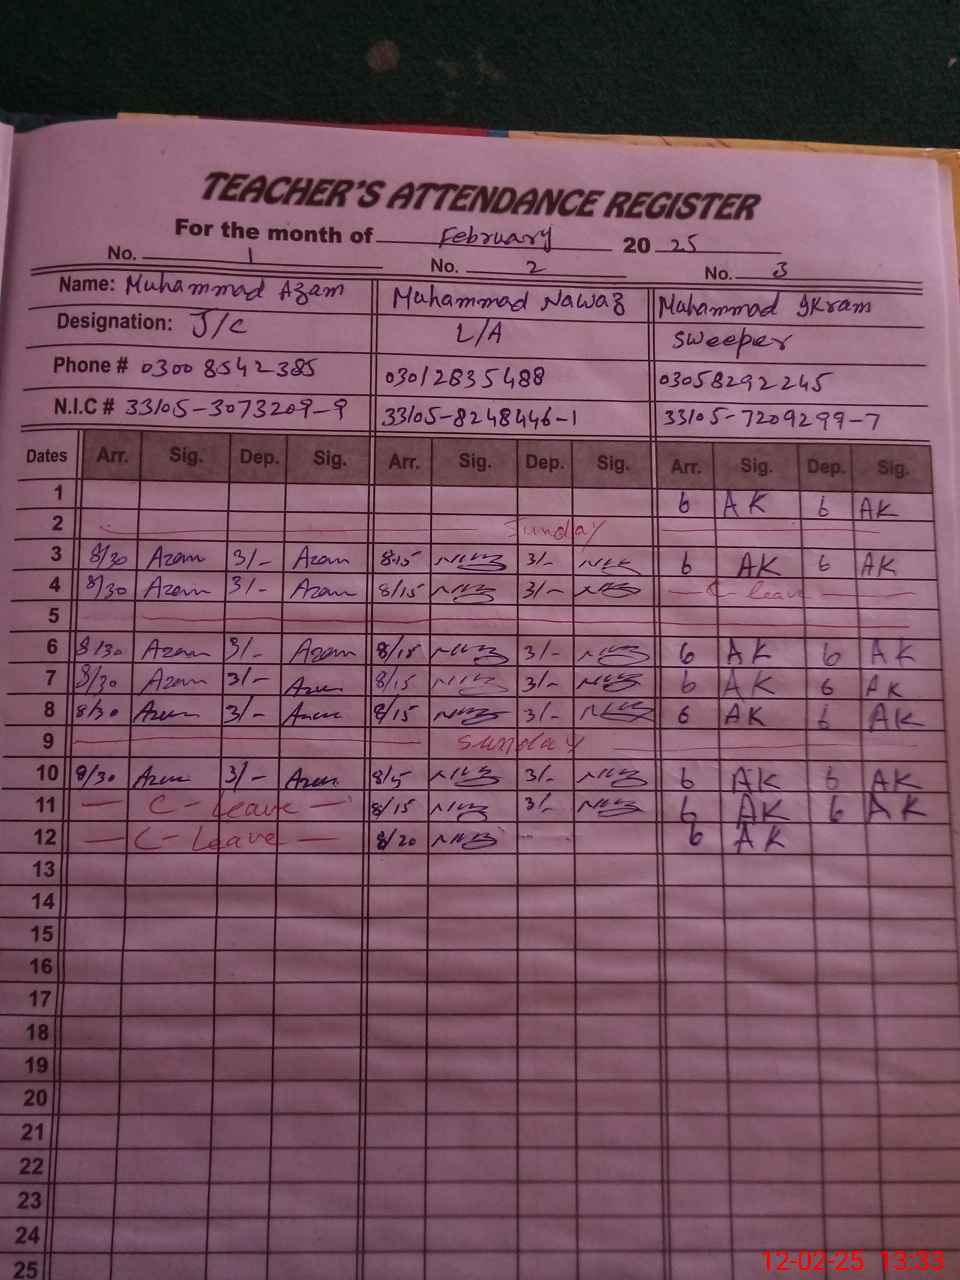 TEACHER'S ATTENDANCE REGISTER
For the month of February 20 25
No. 1 No. 2 No. 3
Name: Muhammad Azam Muhammad Nawaz Muhammad Ikram
Designation: J/C L/A Sweeper
Phone # 0300 8542385 03012835488 03058292245
N.I.C # 33105-3073209-9 33105-8248446-1 33105-7209299-7
Dates Arr. Sig. Dep. Sig. Arr. Sig. Dep. Sig. Arr. Sig. Dep. Sig.
1 6 AK 6 AK
2 Sunday
3 8/30 Azam 3/- Azam 8.15 3/- 6 AK 6 AK
4 8/30 Azam 3/- Azam 8/15 3/- C leave
5
6 8/30 Azam 3/- Azam 8/15 3/- 6 AK 6 AK
7 8/30 Azam 3/- Azam 8/15 3/- 6 AK 6 AK
8 8/30 Azam 3/- Azam 8/15 3/- 6 AK 6 AK
9 Sunday
10 8/30 Azam 3/- Azam 8/5 3/- 6 AK 6 AK
11 C-Leave 8/15 3/- 6 AK 6 AK
12 C-Leave 8/20 6 AK
13
14
15
16
17
18
19
20
21
22
23
24
25
12-02-25 13:33